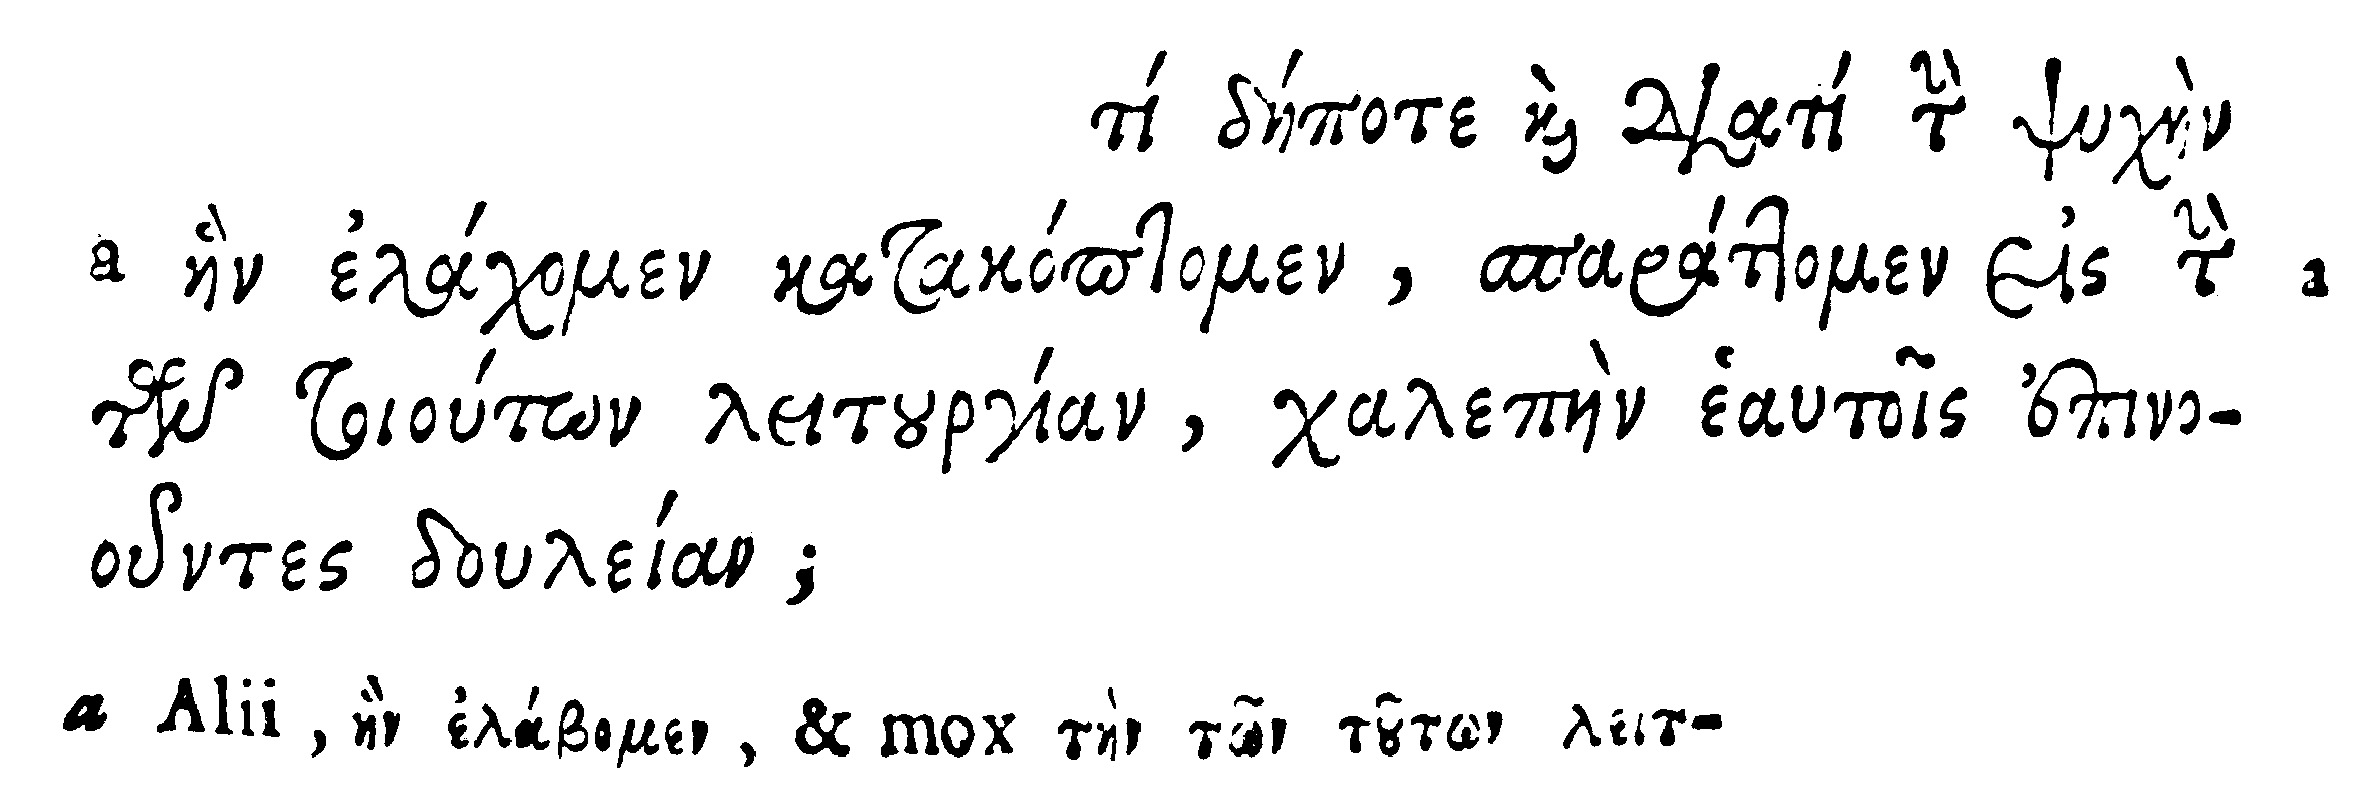 τί δήποτε καὶ διατί τὴν ψυχὴν
a ἣν ἐλάχομεν κατακόπτομεν, σπαράττομεν εἰς τὴν a
τῶν τοιούτων λειτουργίαν, χαλεπὴν ἑαυτοῖς ἐπινο-
οῦντες δουλείαν;
a Alii, ἣν ἐλάβομεν, & mox τὴν τῶν τούτων λειτ-